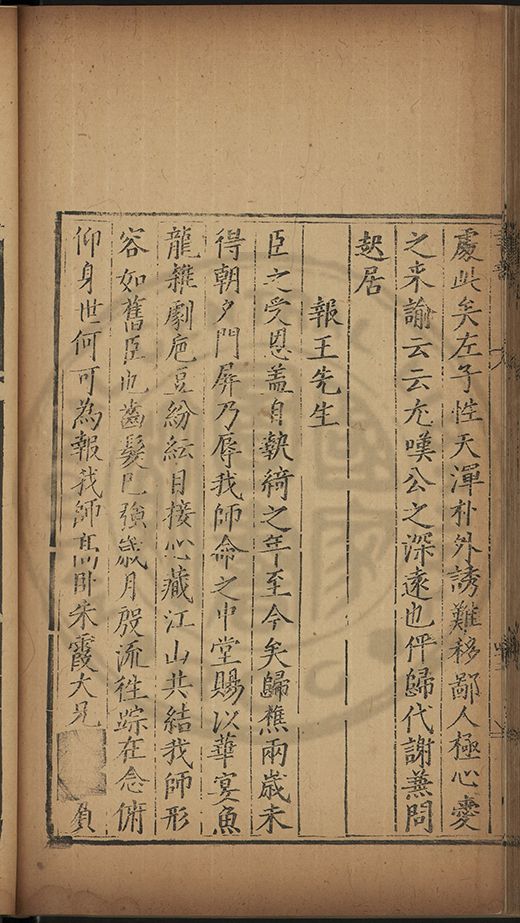 處此矣左子性天渾朴外誘難移鄙人極心愛
之来諭云云尤嘆公之深遠也伻歸代謝兼問
起居
報王先生
臣之受恩盖自執綺之年至今矣歸樵兩歳未
得朝夕門屏乃辱我師命之中堂賜以華宴魚
龍雜劇庖豆紛紜目接心藏江山共結我師形
容如舊臣也齒髮已強歳月殷流徃踪在念俯
仰身世何可為報我師髙卧朱霞大兄負